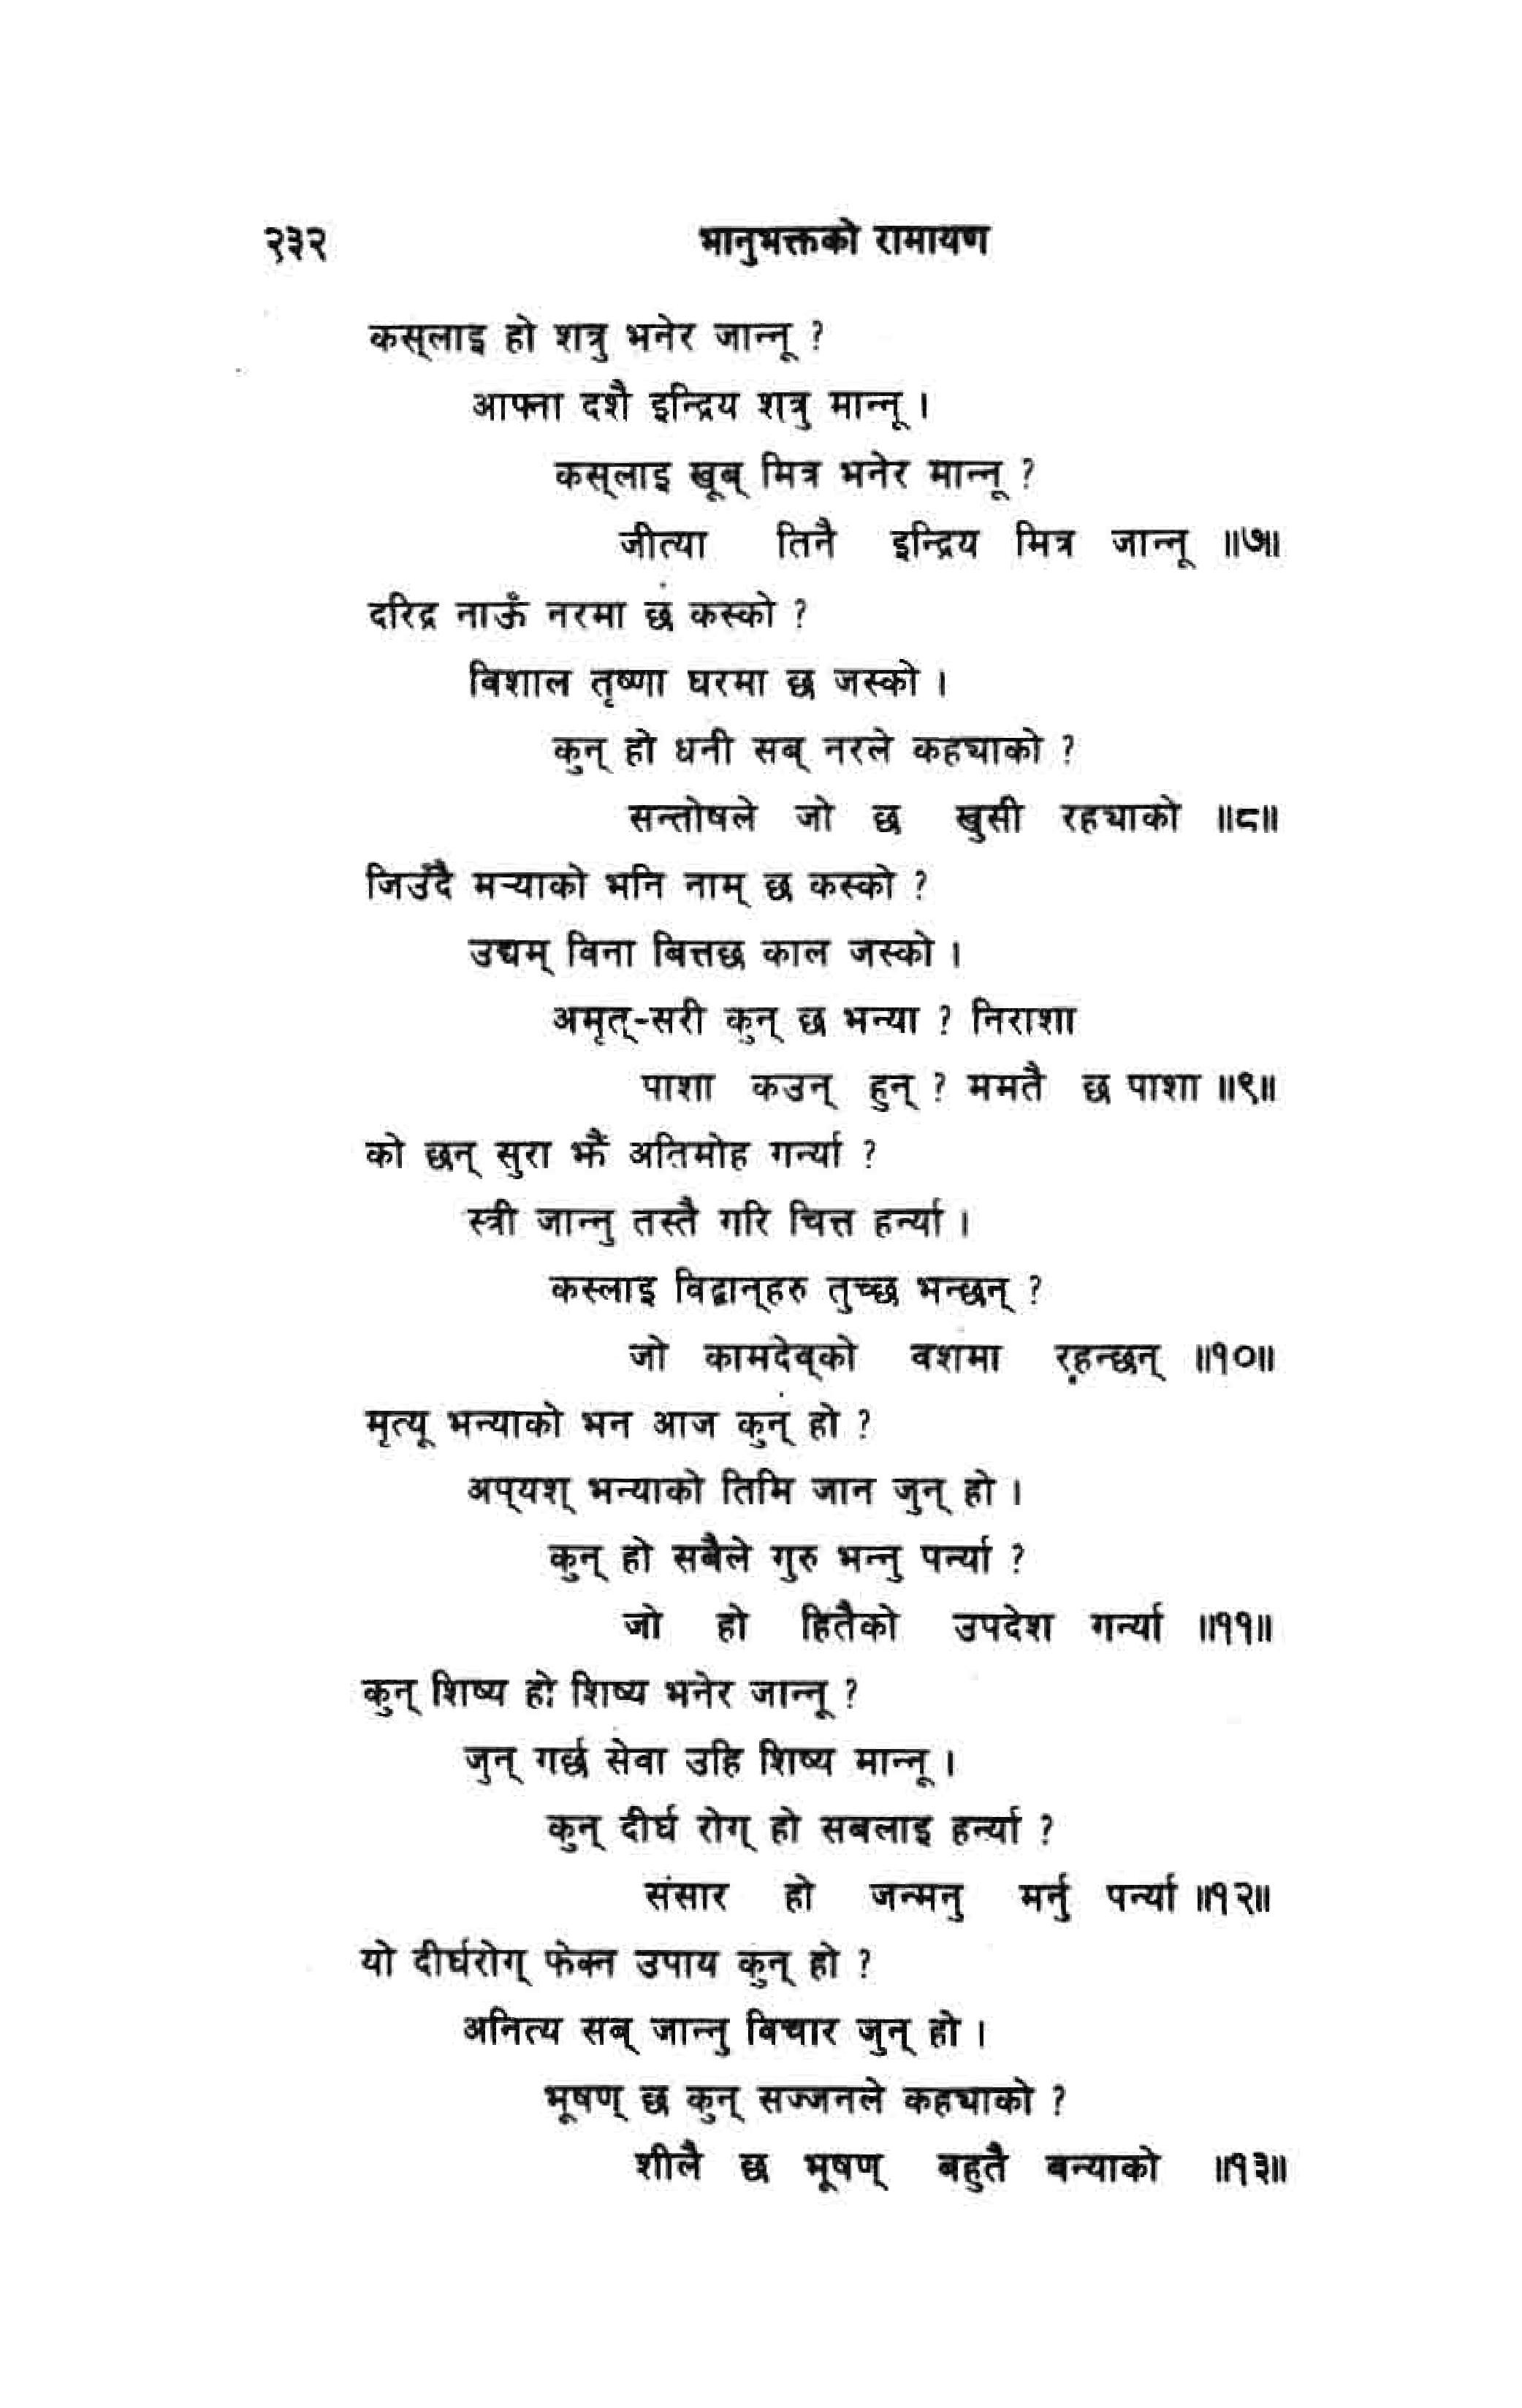 २३२ भानुभक्तको रामायण
कस्‌लाइ हो शत्रु भनेर जान्नू ?
आफ्ना दशै इन्द्रिय शत्रु मान्नू ।
कस्‌लाइ खूब् मित्र भनेर मान्नू ?
जीत्या तिनै इन्द्रिय मित्र जान्नू ॥७॥
दरिद्र नाऊँ नरमा छ कस्को ?
विशाल तृष्णा घरमा छ जस्को ।
कुन् हो धनी सब् नरले कह्याको ?
सन्तोषले जो छ खुसी रह्याको ॥८॥
जिउँदै मर्‍याको भनि नाम् छ कस्को ?
उद्यम् विना बित्तछ काल जस्को ।
अमृत्-सरी कुन् छ भन्या ? निराशा
पाशा कउन् हुन् ? ममतै छ पाशा ॥९॥
को छन् सुरा झैं अतिमोह गर्न्या ?
स्त्री जान्नु तस्तै गरि चित्त हर्न्या ।
कस्लाइ विद्वान्‌हरु तुच्छ भन्छन् ?
जो कामदेव्‌को वशमा रहन्छन् ॥१०॥
मृत्यू भन्याको भन आज कुन् हो ?
अप्‌यश् भन्याको तिमि जान जुन् हो ।
कुन् हो सबैले गुरु भन्नु पर्न्या ?
जो हो हितैको उपदेश गर्न्या ॥११॥
कुन् शिष्य हो शिष्य भनेर जान्नू ?
जुन् गर्छ सेवा उहि शिष्य मान्नू ।
कुन् दीर्घ रोग् हो सबलाइ हर्न्या ?
संसार हो जन्मनु मर्नु पर्न्या ॥१२॥
यो दीर्घरोग् फेक्न उपाय कुन् हो ?
अनित्य सब् जान्नु विचार जुन् हो ।
भूषण् छ कुन् सज्जनले कह्याको ?
शीलै छ भूषण् बहुतै बन्याको ॥१३॥